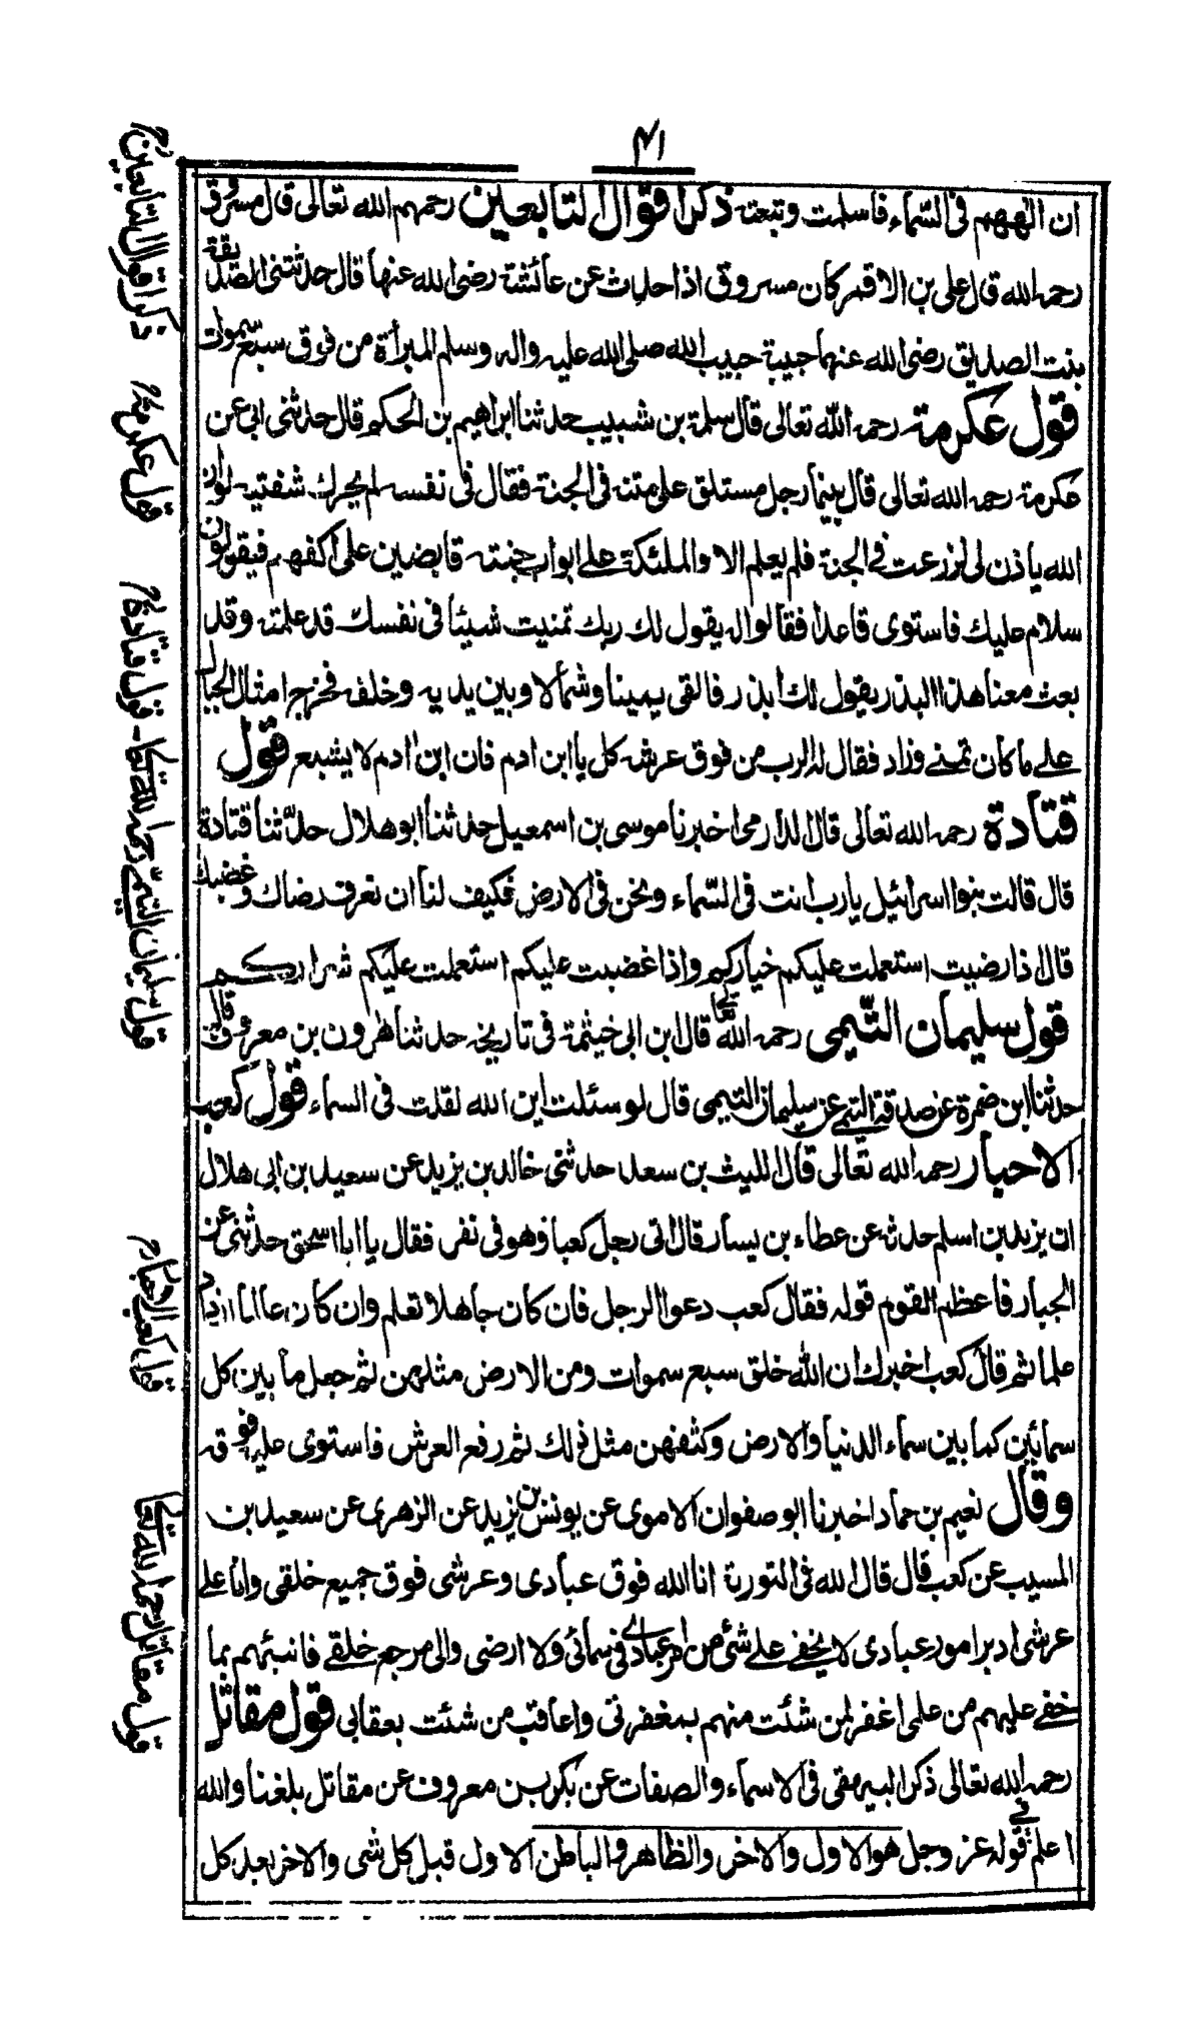 ٤١
ان الههم فى السّماء فاسلمت وتبعته ذكر اقوال التابعين رحمهم الله تعالى قال مسروق
رحمه الله قال على بن الاقمر كان مسروق اذا حدث عن عائشة رضى الله عنها قال حدثتنى الصديقة
بنت الصديق رضى الله عنهما حبيبة حبيب الله صلى الله عليه واله وسلم المبرأة من فوق سبع سموات
قول عكرمة رحمه الله تعالى قال سلمة بن شبيب حدثنا ابراهيم بن الحكم قال حدثنى ابى عن
عكرمة رحمه الله تعالى قال بينما رجل مستلق على متنه فى الجنة فقال فى نفسه لم يحرك شفتيه لو ان
الله ياذن لى لزرعت فى الجنة فلم يعلم الا والملئكة على ابواب جنته قابضين على اكفهم فيقولون
سلام عليك فاستوى قاعدا فقالوا له يقول لك ربك تمنيت شيئا فى نفسك قد علمته وقد
بعث معنا هذا البذر يقول لك ابذر فالقى يمينا وشمالا وبين يديه وخلفه فخرج امثال الجبال
على ما كان تمنى وزاد فقال له الرب من فوق عرشه كل يا ابن ادم فان ابن ادم لا يشبع قول
قتادة رحمه الله تعالى قال الدارمى اخبرنا موسى بن اسمعيل حدثنا ابو هلال حدّثنا قتادة
قال قالت بنوا اسرائيل يارب انت فى السّماء ونحن فى الارض فكيف لنا ان نعرف رضاك وغضبك
قال اذا رضيت استعملت عليكم خياركم واذا غضبت عليكم استعملت عليكم شراركم
قول سليمان التّيمى رحمه الله تعالى قال ابن ابى خيثمة فى تاريخه حدثنا هرون بن معروف قال
حدثنا ابن ضمرة عن صدقة التيمى عن سليمان التيمى قال لو سئلت اين الله لقلت فى السماء قول كعب
الاحبار رحمه الله تعالى قال الليث بن سعد حدثنى خالد بن يزيد عن سعيد بن ابى هلال
ان يزيد بن اسلم حدثه عن عطاء بن يسار قال اتى رجل كعبا وهو فى نفر فقال يا ابا اسحق حدثنى عن
الجبار فاعظم القوم قوله فقال كعب دعوا الرجل فان كان جاهلا تعلم وان كان عالما ازداد
علما ثم قال كعب اخبرك ان الله خلق سبع سموات ومن الارض مثلهن ثم جعل ما بين كل
سمائين كما بين سماء الدنيا والارض وكثفهن مثل ذلك ثم رفع العرش فاستوى عليه فوقه
وقال نعيم بن حماد اخبرنا ابو صفوان الاموى عن يونس بن يزيد عن الزهرى عن سعيد بن
المسيب عن كعب قال قال الله فى التورية انا الله فوق عبادى وعرشى فوق جميع خلقى وانا على
عرشى ادبر امور عبادى لا يخفى على شئ من امر عبادى فى سمائى ولا ارضى والى مرجع خلقى فانبئهم بما
خفى عليهم من علمى اغفر لمن شئت منهم بمغفرتى واعاقب من شئت بعقابى قول مقاتل
رحمه الله تعالى ذكر البيهقى فى الاسماء والصفات عن بكر بن معروف عن مقاتل بلغنا والله
اعلم فى قوله عز وجل هو الاول والاخر والظاهر والباطن الاول قبل كل شى والاخر بعد كل
ذكر اقوال التابعين رح
قول عكرمة رح
قول قتادة رح - قول سليمان التيمى رحمه الله تعالى
قول كعب الاحبار رح
قول مقاتل رحمه الله تعالى